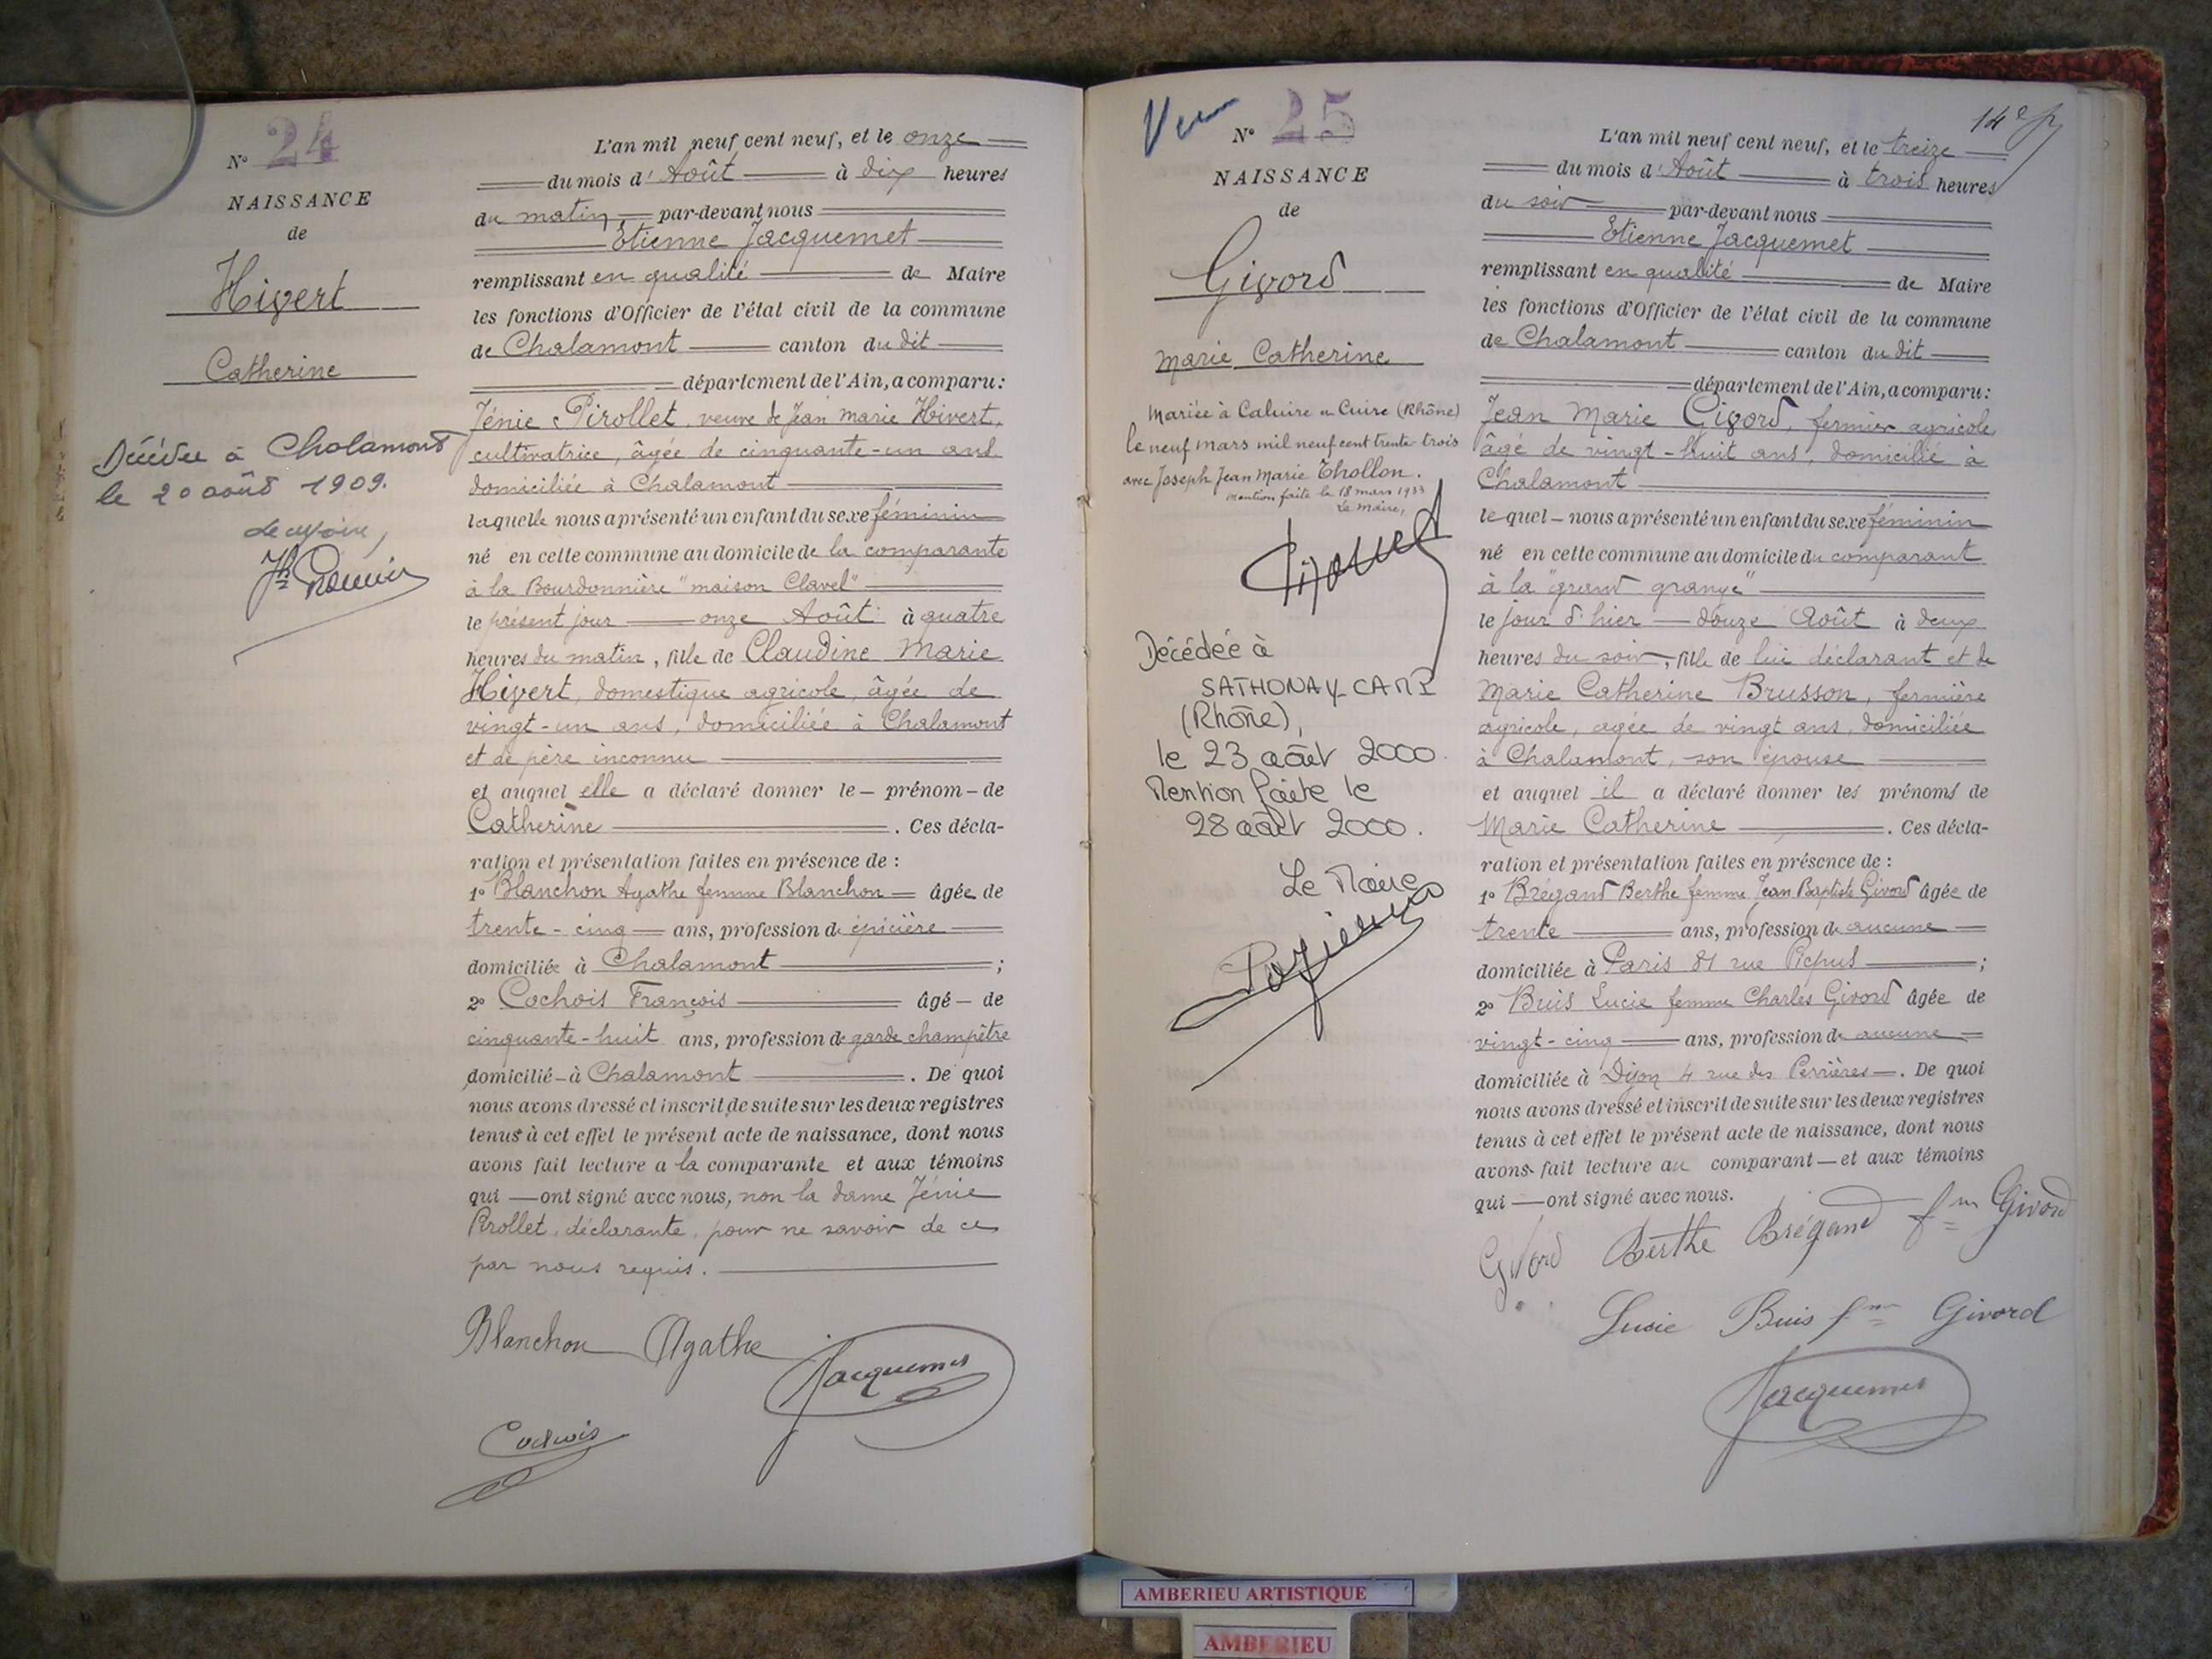 N° 24
NAISSANCE
de
Hivert
Catherine
Décédée à Chalamont
le 20 août 1909.
L'an mil neuf cent neuf, et le onze
du mois d'Août à dix heures
du matin, par-devant nous
Etienne Jacquemet
remplissant en qualité de Maire
les fonctions d'Officier de l'état civil de la commune
de Chalamont canton du dit
département de l'Ain, a comparu:
Jénie Pirollet, veuve de Jean Marie Hivert,
cultivatrice, âgée de cinquante-un ans
domiciliée à Chalamont
laquelle nous a présenté un enfant du sexe féminin
né en cette commune au domicile de la comparante
à la Bourdonnière "maison Clavel"
le présent jour onze Août à quatre
heures du matin, fille de Claudine Marie
Hivert, domestique agricole, âgée de
vingt-un ans, domiciliée à Chalamont
et de père inconnu
et auquel elle a déclaré donner le - prénom - de
Catherine. Ces décla-
ration et présentation faites en présence de :
1° Blanchon Agathe femme Blanchon âgée de
trente-cinq ans, profession d'épicière
domiciliée à Chalamont ;
2° Cochois François âgé - de
cinquante-huit ans, profession de garde champêtre
domicilié - à Chalamont. De quoi
nous avons dressé et inscrit de suite sur les deux registres
tenus à cet effet le présent acte de naissance, dont nous
avons fait lecture a la comparante et aux témoins
qui — ont signé avec nous, non la dame Jénie
Pirollet, déclarante, pour ne savoir de ce
par nous requis.
Blanchon Agathe
Jacquemet
Cochois
N° 25
NAISSANCE
de
Givord
Marie Catherine
Mariée à Caluire et Cuire (Rhône)
le neuf mars mil neuf cent trente trois
avec Joseph Jean Marie Thollon.
Mention faite le 18 mars 1933
Le Maire,
Décédée à
SATHONAY-CAMP
(Rhône),
le 23 août 2000.
Mention faite le
28 août 2000.
Le Maire
14e
L'an mil neuf cent neuf, et le treize
du mois d'Août à trois heures
du soir par-devant nous
Etienne Jacquemet
remplissant en qualité de Maire
les fonctions d'Officier de l'état civil de la commune
de Chalamont canton du dit
département de l'Ain, a comparu:
Jean Marie Givord, fermier agricole,
âgé de vingt-huit ans, domicilié à
Chalamont
lequel - nous a présenté un enfant du sexe féminin
né en cette commune au domicile du comparant
à la "grand grange"
le jour d'hier — douze Août à deux
heures du soir, fille de lui déclarant et de
Marie Catherine Brusson, fermière
agricole, agée de vingt ans, domiciliée
à Chalamont, son épouse
et auquel il a déclaré donner les prénoms de
Marie Catherine. Ces décla-
ration et présentation faites en présence de :
1° Brégand Berthe femme Jean Baptiste Givord âgée de
trente ans, profession de aucune
domiciliée à Paris 81 rue Picpus ;
2° Buis Lucie femme Charles Givord âgée de
vingt-cinq ans, profession de aucune
domiciliée à Dijon 4 rue des Perrières. De quoi
nous avons dressé et inscrit de suite sur les deux registres
tenus à cet effet le présent acte de naissance, dont nous
avons fait lecture au comparant — et aux témoins
qui — ont signé avec nous.
Givord Berthe Brégand fme Givord
Lucie Buis fme Givord
Jacquemet
AMBERIEU ARTISTIQUE
AMBERIEU